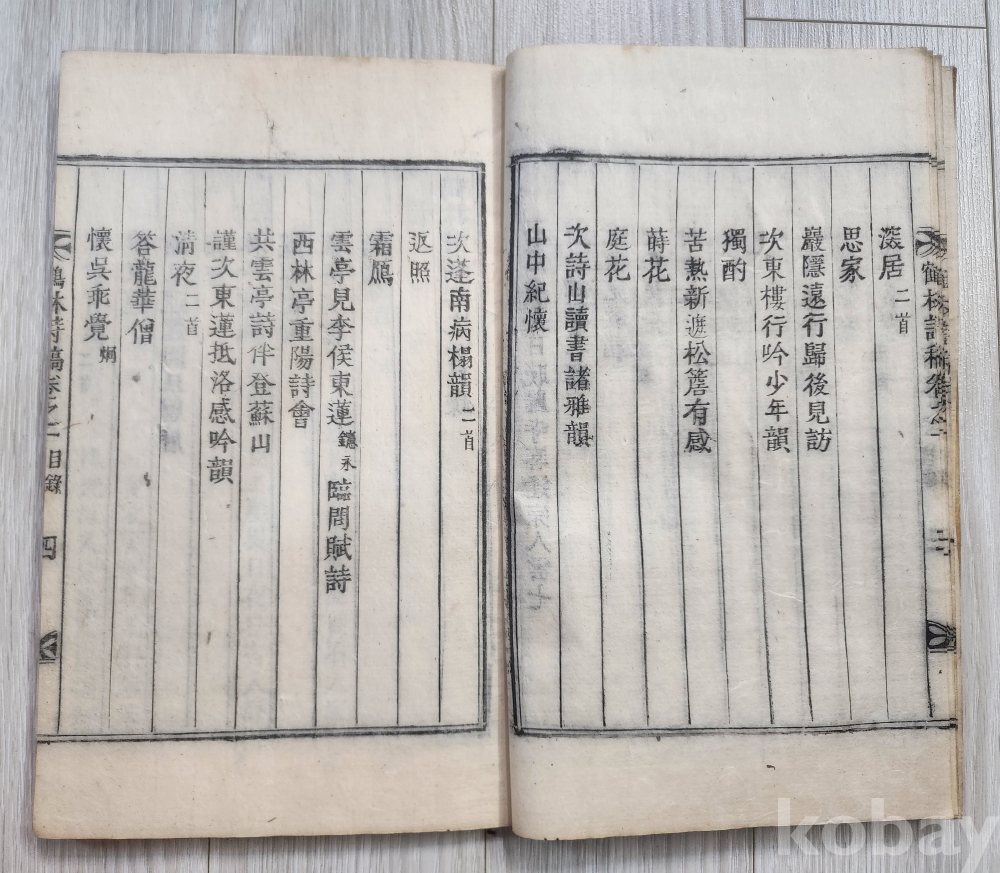 深居 二首
思家
巖隱遠行歸後見訪
次東樓行吟少年韻
獨酌
苦熱新遮松簷有感
蒔花
庭花
次詩山讀書諸雅韻
山中紀懷
次蓬南病榻韻 二首
返照
霜鴈
雲亭見李侯東蓮 鐩永 臨問賦詩
西林亭重陽詩會
共雲亭詩伴登蘇山
謹次東蓮抵洛感吟韻
淸夜 二首
答龍華僧
懷吳乖覺 炯
鶴林詩稿卷之二 目錄 四
kobay